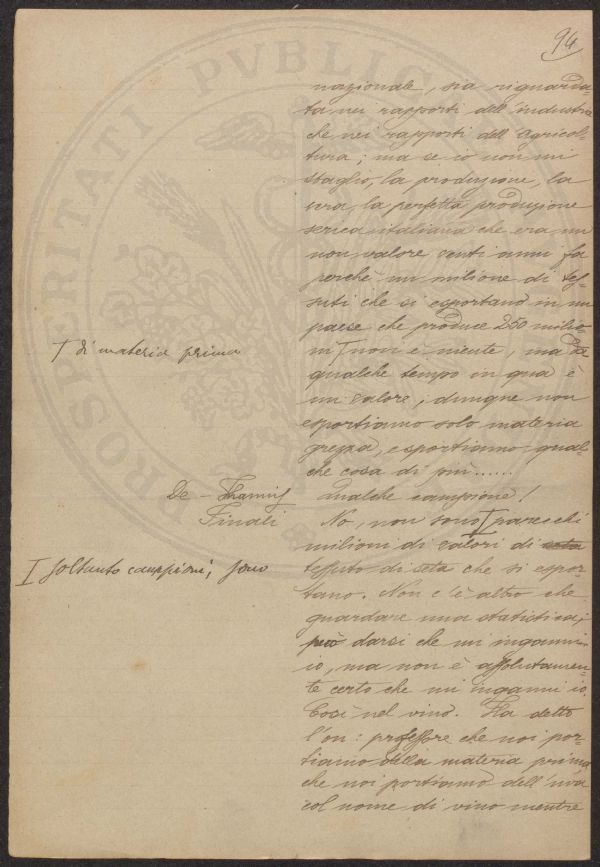 94
nazionale, sia riguarda
ta nei rapporti dell'industria
che nei rapporti dell'agricol-
tura; ma se io non mi
sbaglio, la produzione, la
vera, la perfetta produzione
serica italiana che era un
non valore venti anni fa
perchè un milione di tes-
suti che si esportano in un
paese che produce 250 milio-
T di materia prima
ni T non è niente, ma da
qualche tempo in qua è
un valore; dunque non
esportiamo solo materia
greggia, esportiamo qual-
che cosa di più......
De-
Qualche campione!
Finali
No, non sono I parecchi
milioni di valori di seta
I soltanto campioni; sono
tessuto di seta che si espor-
tano. Non c'è altro che
guardare una statistica;
può darsi che mi inganni
io, ma non è assolutamen-
te certo che mi inganni io.
Così nel vino. Ha detto
l'on: professore che noi por-
tiamo della materia prima,
che noi portiamo dell'uva
col nome di vino mentre
PROSPERITATI PVBLICAE